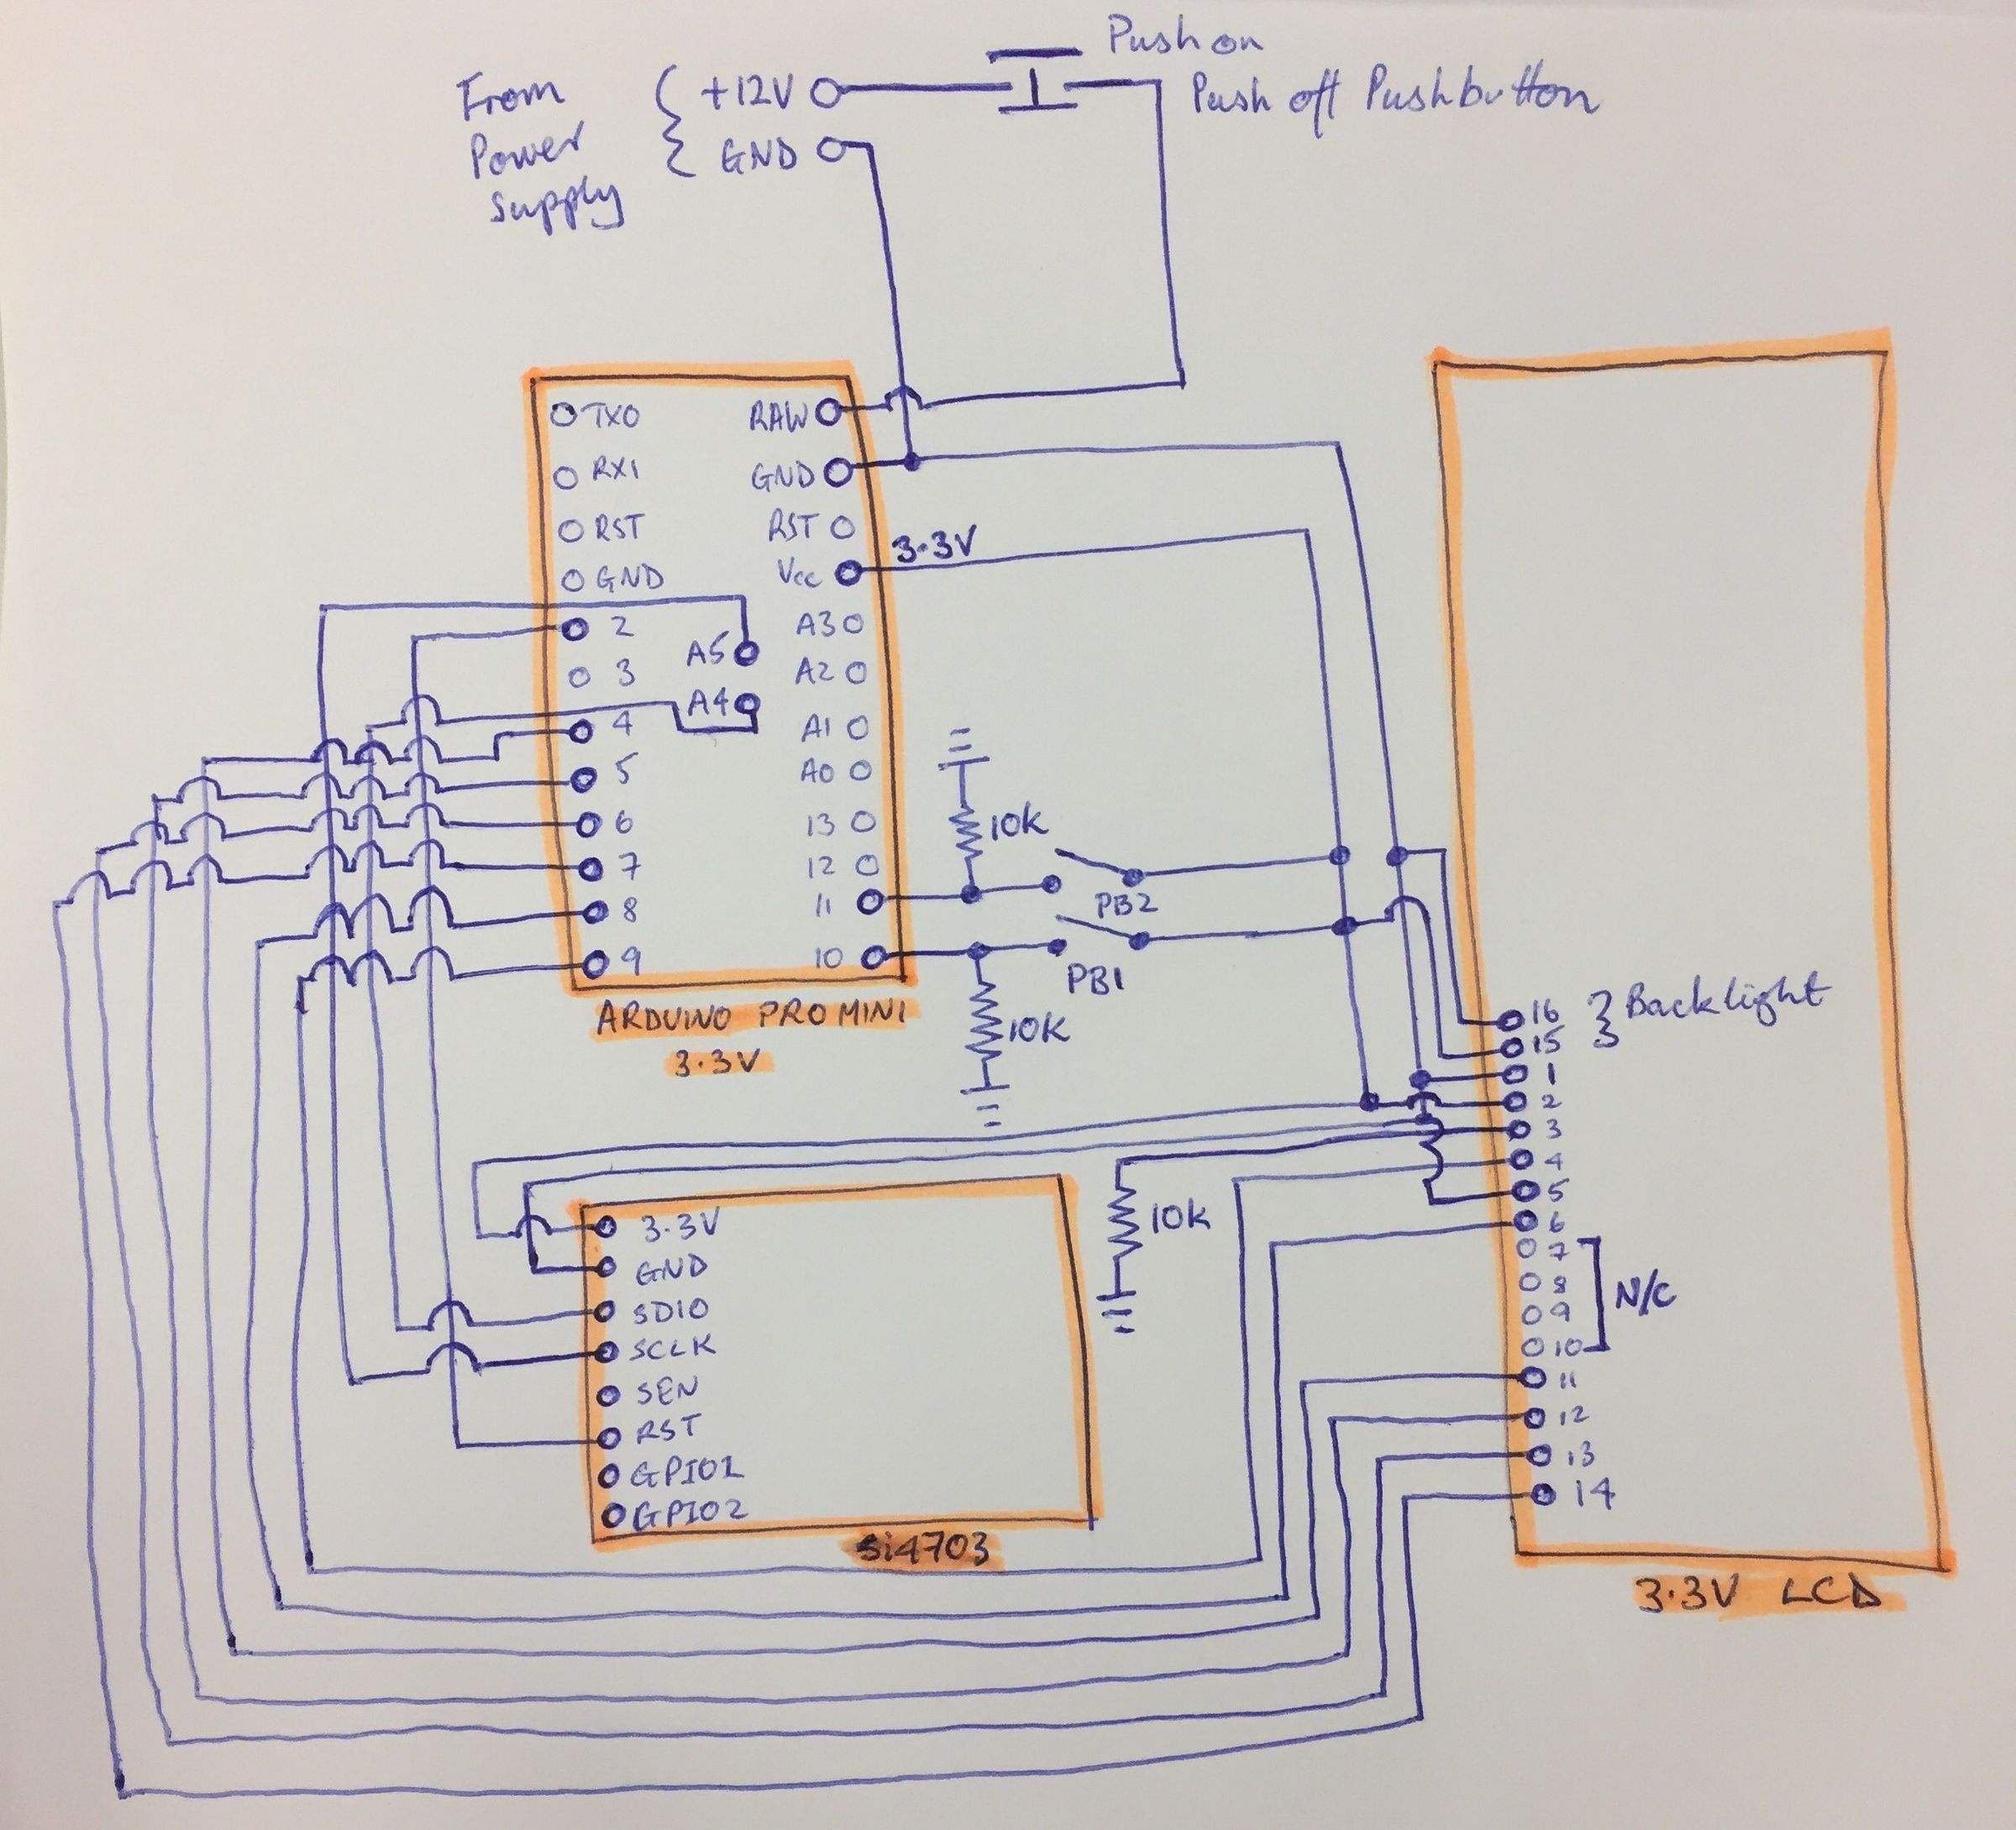 Push on
Push off Pushbutton
From
Power
Supply
+12V
GND
TXO
RX1
RST
GND
2
3
4
5
6
7
8
9
A5
A4
RAW
GND
RST
Vcc
A3
A2
A1
A0
13
12
11
10
3.3V
ARDUINO PRO MINI
3.3V
10K
PB2
PB1
10K
10K
3.3V
GND
SDIO
SCLK
SEN
RST
GPIO1
GPIO2
Si4703
16
15
Backlight
1
2
3
4
5
6
7
8
9
10
N/C
11
12
13
14
3.3V LCD